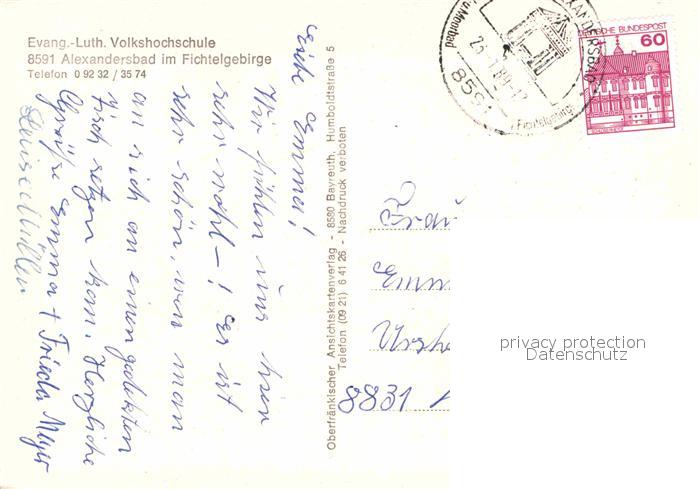 Evang.-Luth. Volkshochschule
8591 Alexandersbad im Fichtelgebirge
Telefon 0 92 32 / 35 74
Liebe Emma!
Wir fühlen uns hier
sehr wohl – ! es ist
sehr schön, wen man
an sich an einen gedekten
Tisch setzen kan. Herzliche
Grüße Emma + Frieda Meyer
Luise Müller
Oberfränkischer Ansichtskartenverlag - 8580 Bayreuth, Humboldtstraße 5
Telefon (09 21) 6 41 26 - Nachdruck verboten
8591
Fichtelgebirge
DEUTSCHE BUNDESPOST
60
Frau
Emm
8831
privacy protection
Datenschutz